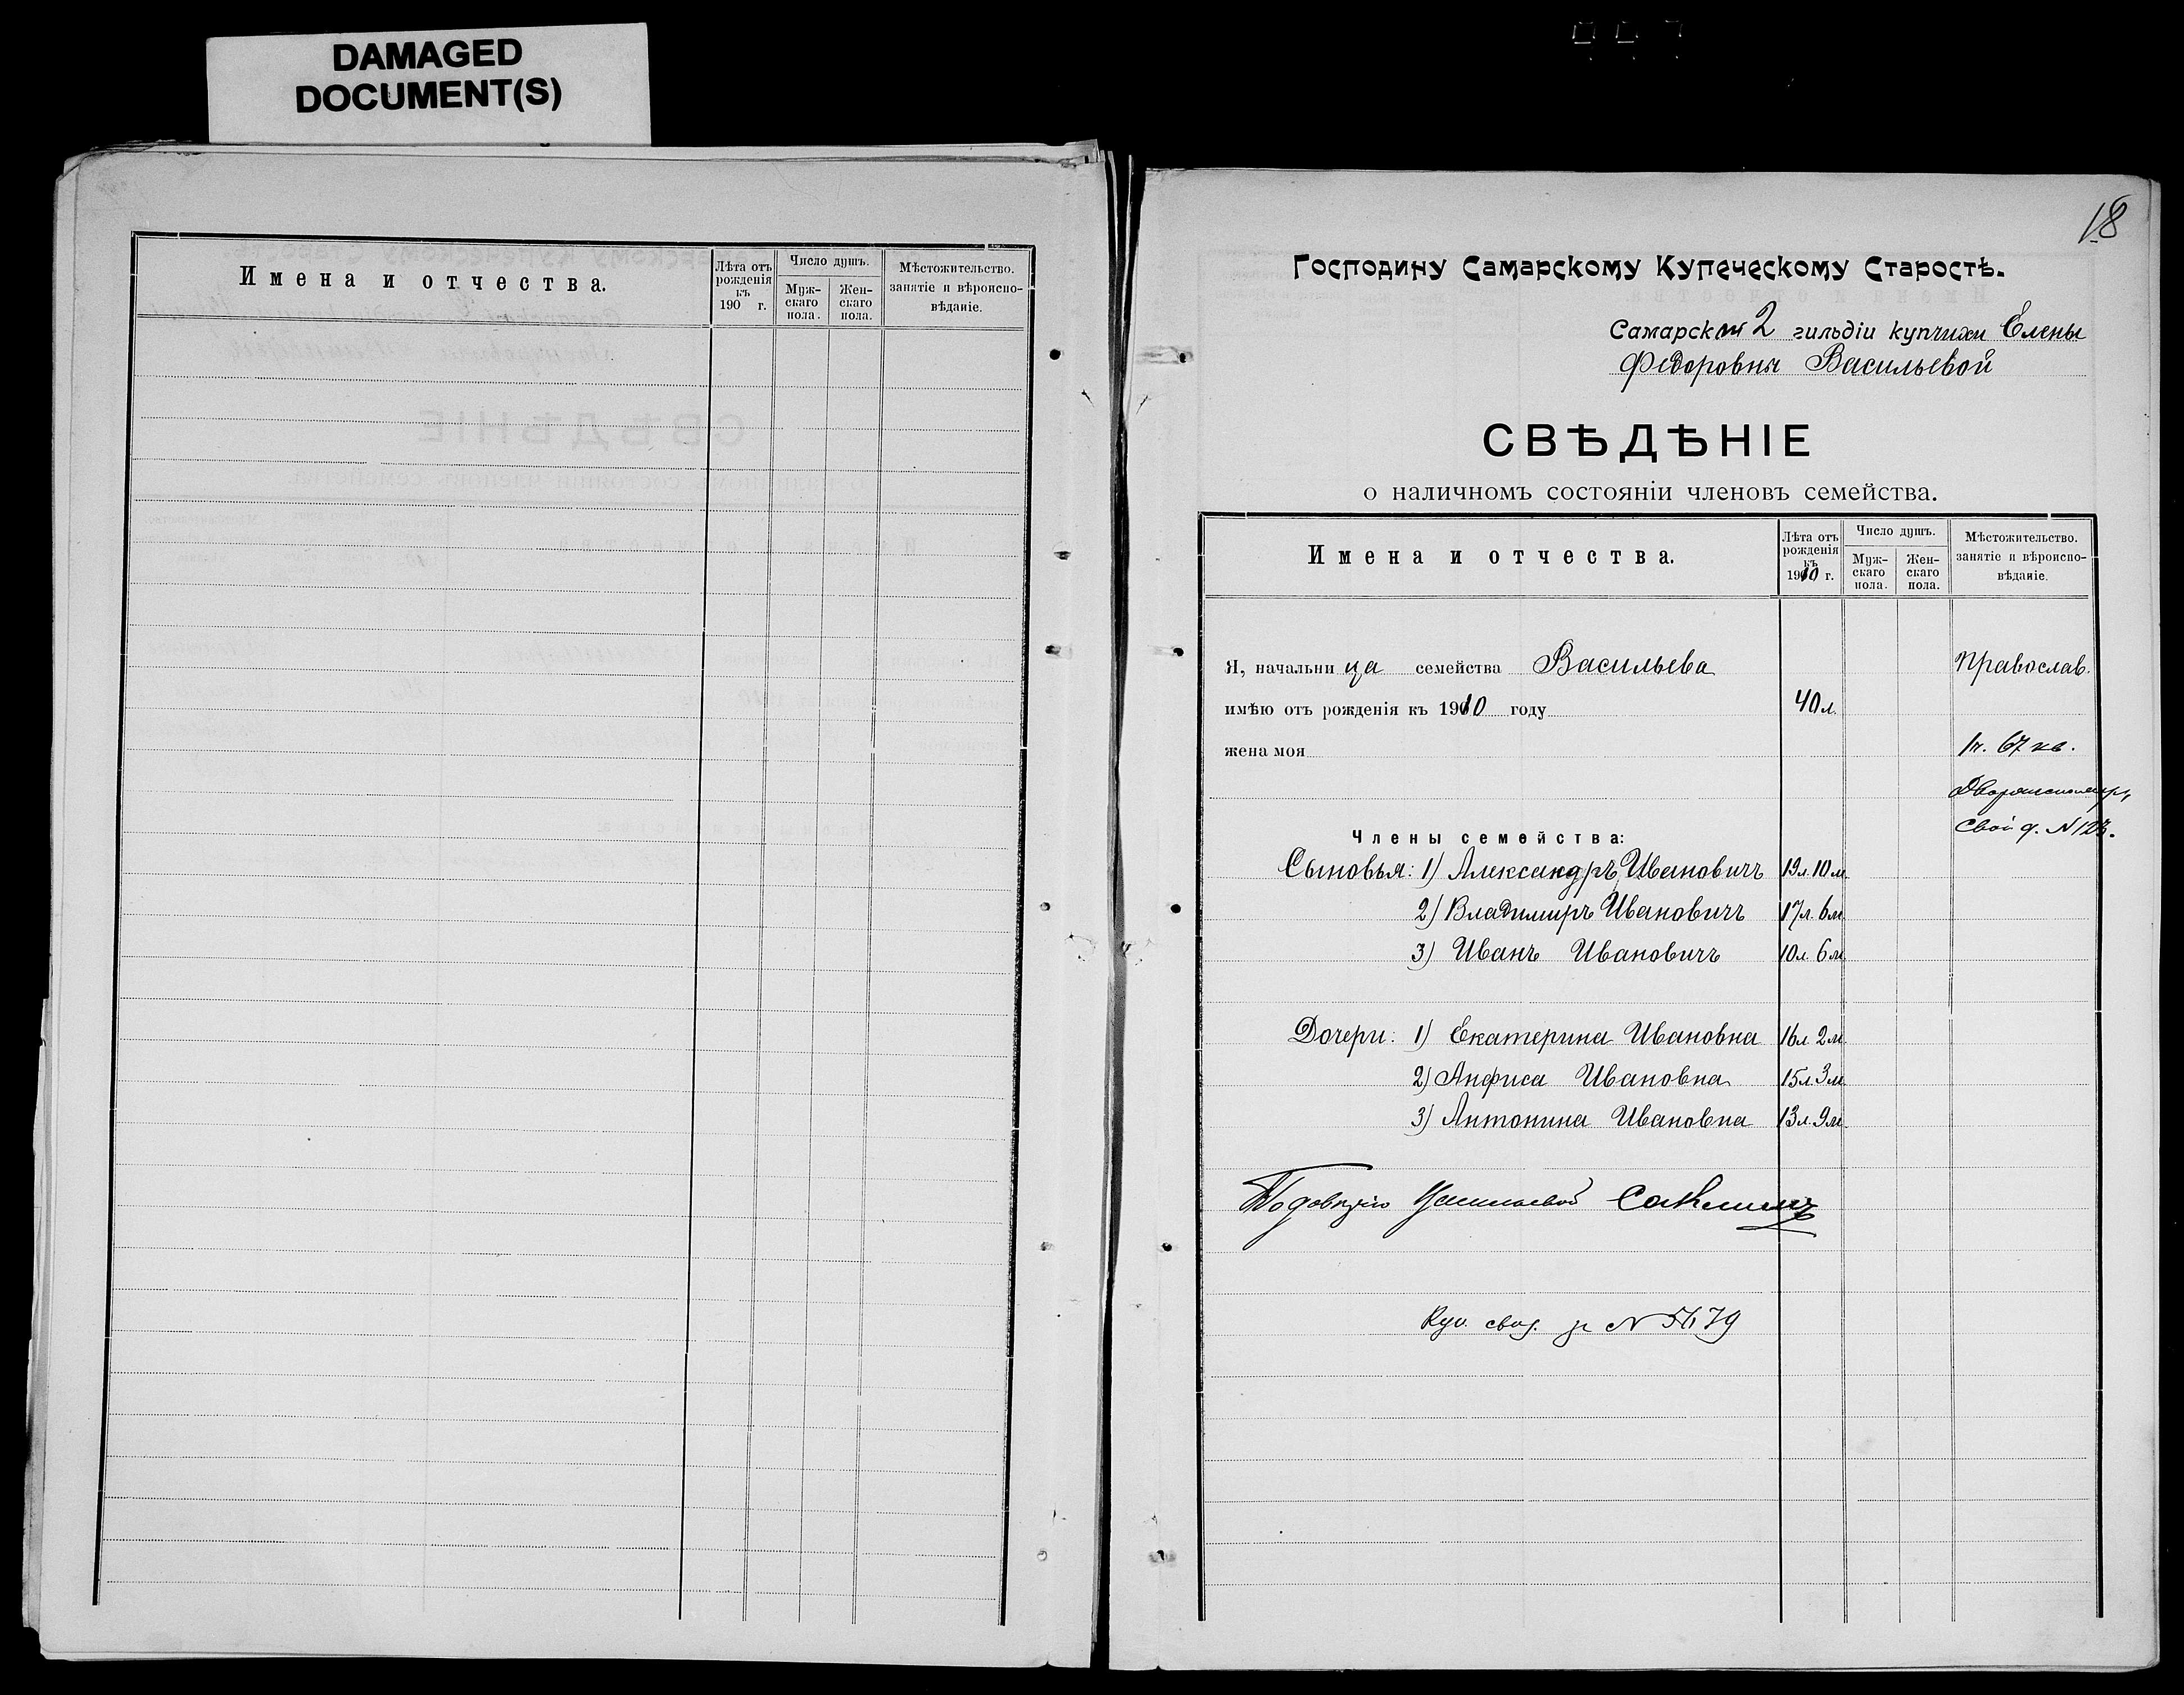 DAMAGED
DOCUMENT(S)
Имена и отчества.
Лѣта отъ рожденія къ 190 г.
Число душъ.
Муж-скаго пола.
Жен-скаго пола.
Мѣстожительство. занятіе и вѣроиспо-вѣданіе.
18
Господину Самарскому Купеческому Старостѣ.
Самарской 2 гильдіи купчихи Елены
Федоровны Васильевой
СВѢДѢНІЕ
о наличномъ состояніи членовъ семейства.
Имена и отчества.
Лѣта отъ рожденія къ 1910 г.
Число душъ.
Муж-скаго пола.
Жен-скаго пола.
Мѣстожительство. занятіе и вѣроиспо-вѣданіе.
Я, начальница семейства Васильева Православ.
имѣю отъ рожденія къ 1910 году 40 л.
жена моя 1ч. 67 кв.
свой д. N 123.
Члены семейства:
Сыновья: 1) Александръ Ивановичъ 19л. 10м.
2) Владимиръ Ивановичъ 17л. 6м.
3) Иванъ Ивановичъ 10л. 6м.
Дочери: 1) Екатерина Ивановна 16л. 2м.
2) Анфиса Ивановна 15л. 3м.
3) Антонина Ивановна 13л. 9м.
Куп. свид. за N 5679